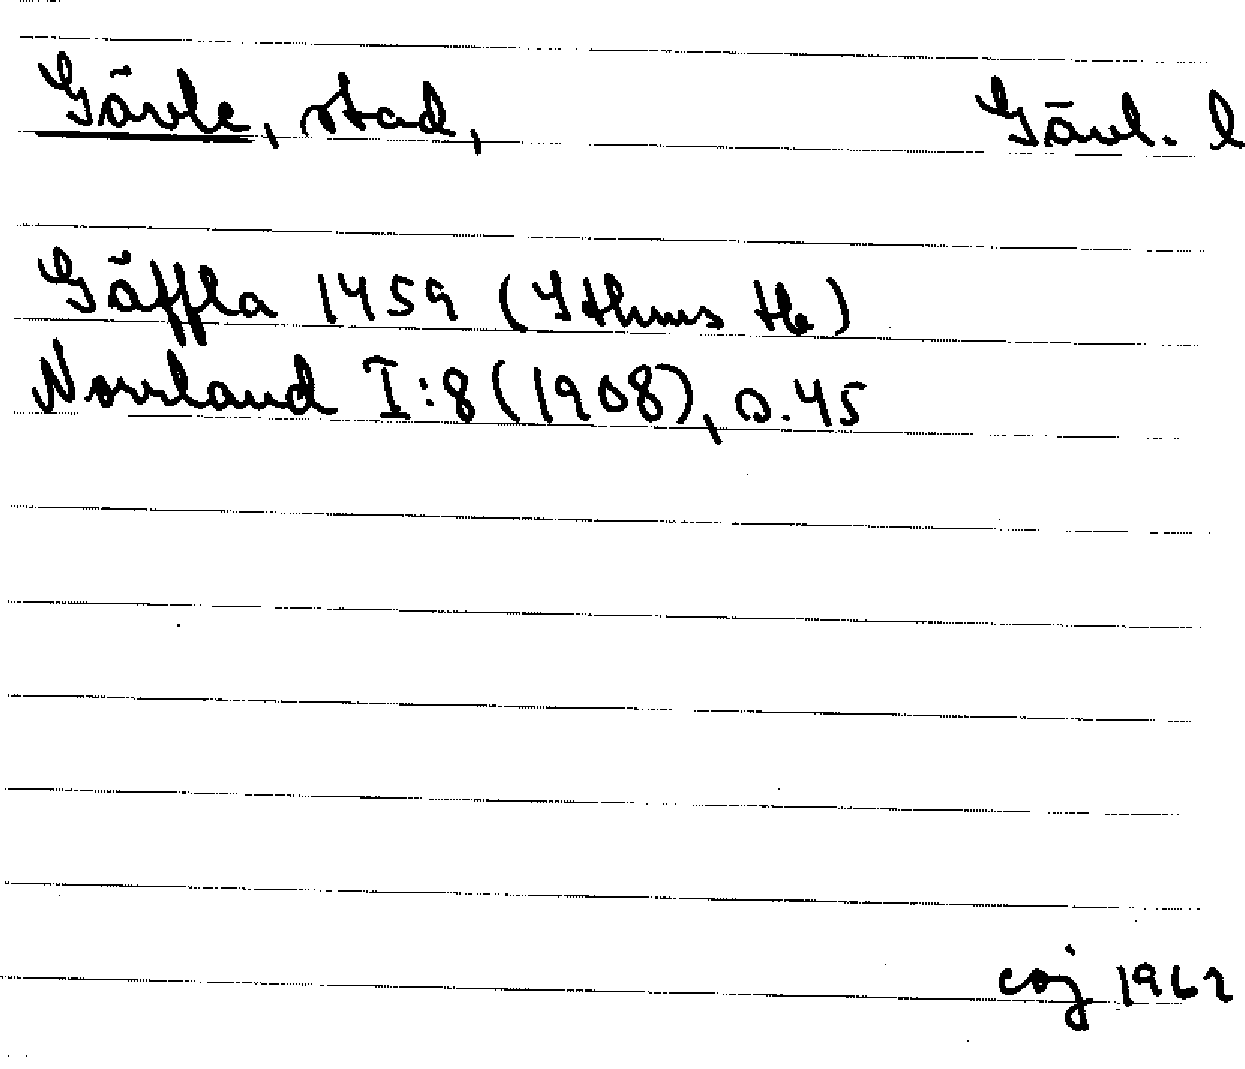 Gävle, stad, Gävl. l
Gäffla 1459 (Sthms tb)
Norrland I:8 (1908), s. 45
coj 1962